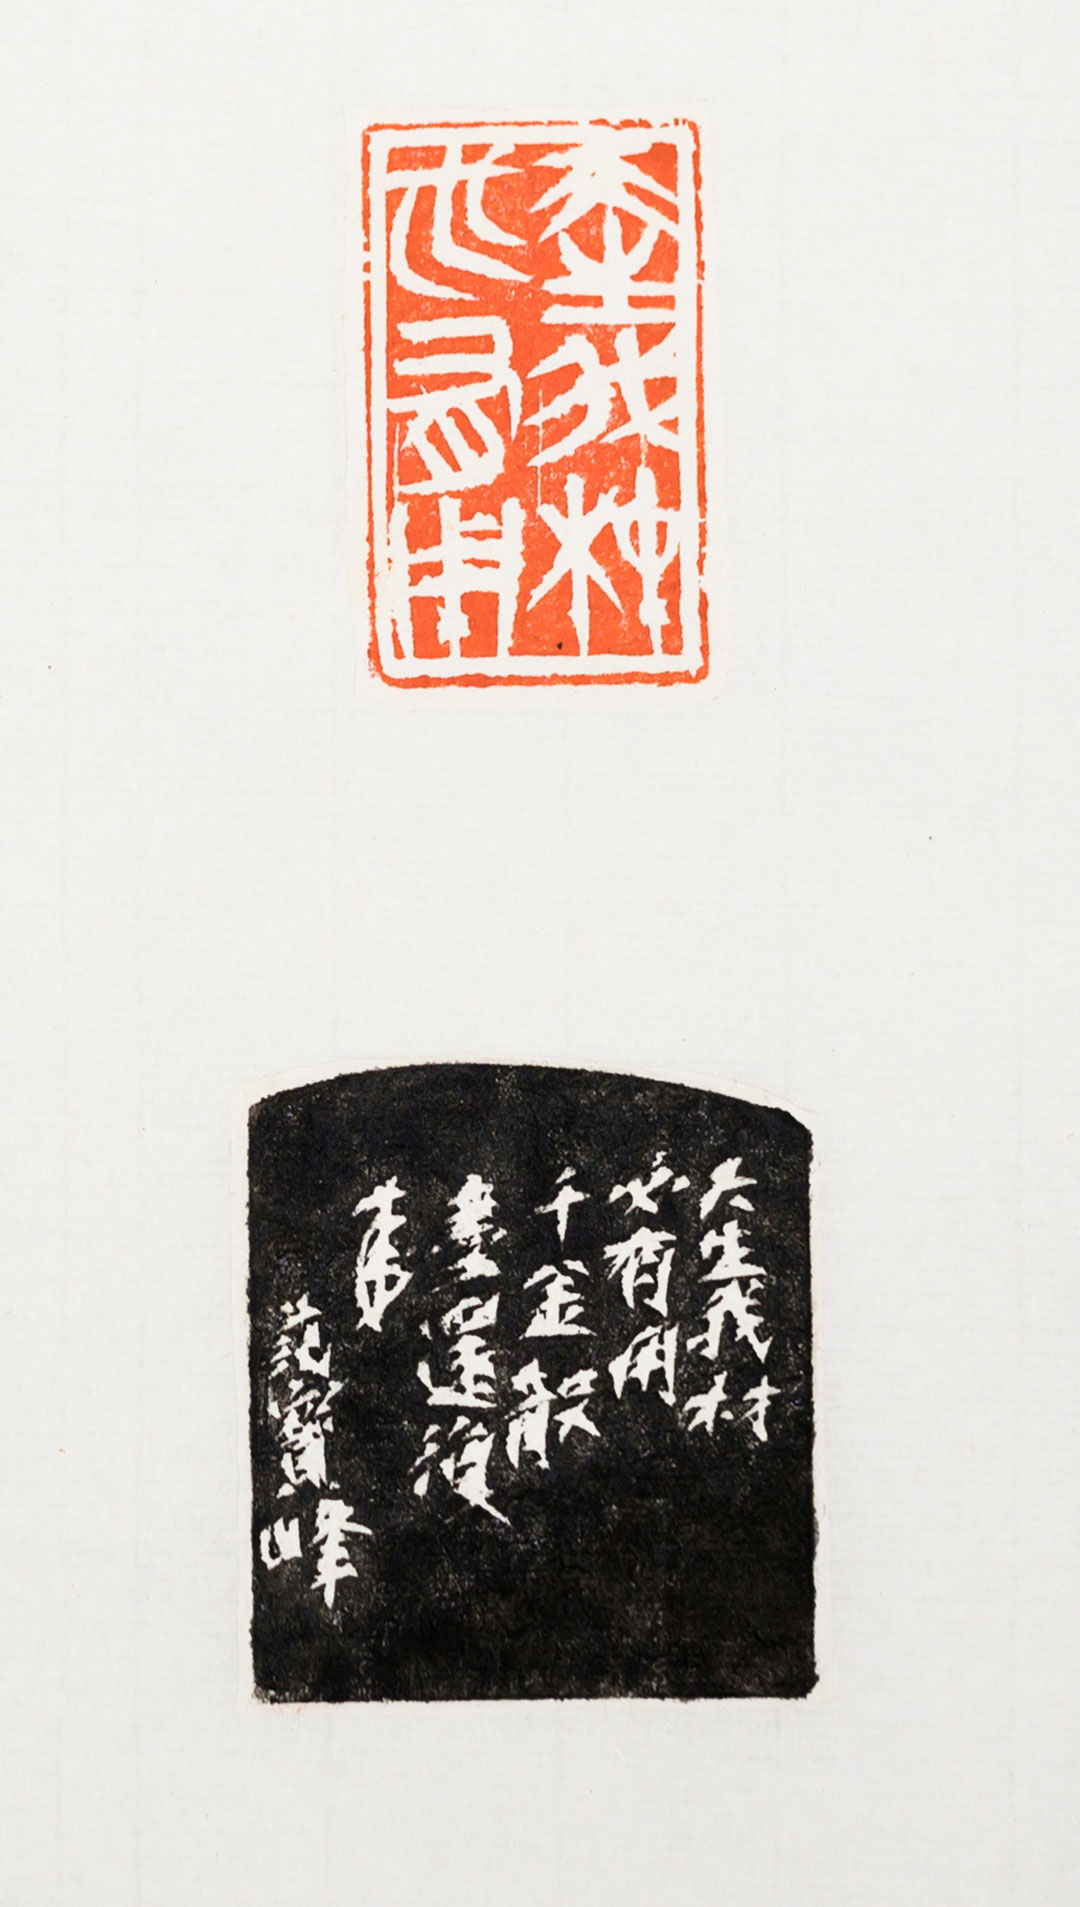 天生我材
必有用
天生我材
必有用
千金散
盡還復
來
范寶峰